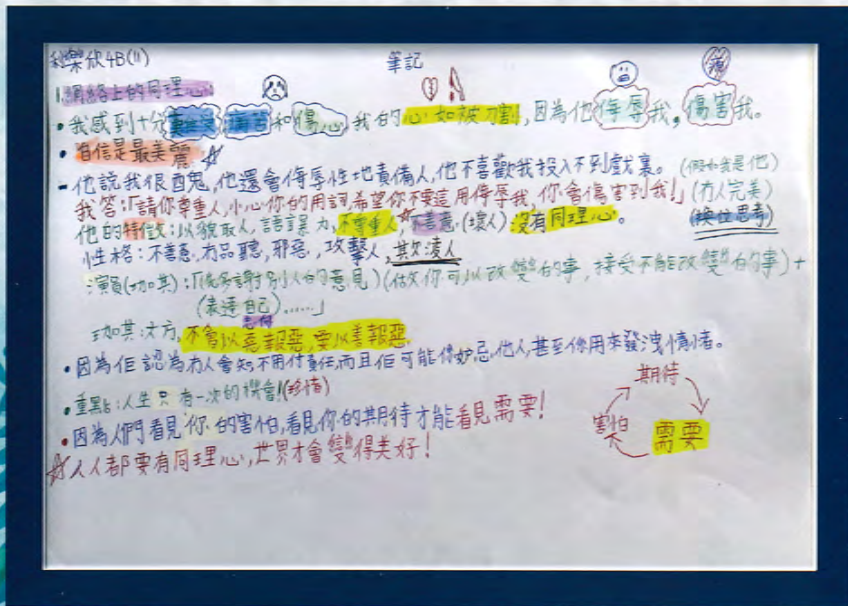 利樂欣4B(11) 筆記
1.網絡上的同理心:
•我感到十分和傷心,我的心如被刀割,因為他侮辱我,傷害我。
•自信是最美麗
-他說我很醜鬼,他還會侮辱性地責備人,他不喜歡我投入不到戲裏。(假如我是他)
我答:「請你尊重人,小心你的用詞,希望你不要這用侮辱我,你會傷害到我!」(冇人完美)
他的特徵:以貌取人,語言暴力,不尊重人,不善意,(壞人):沒有同理心。(換位思考)
性格:不善意,冇品聽,邪惡,攻擊人,其欠凌人
演員(功其):「(先多謝別人的意見)(做你可以改變的事,接受不能改變的事)+
(表達自己)......」
功其:大方,不會以惡報惡,要以善報惡
•因為佢認為冇人會知,不用付責任,而且佢可能係妒忌他人,甚至係用來發洩情緒。
•重點:人生只有一次的機會!(珍惜)
•因為人門看見你的害怕,看見你的期待才能看見需要!
人人都要有同理心,世界才會變得美好!
期待
害怕
需要